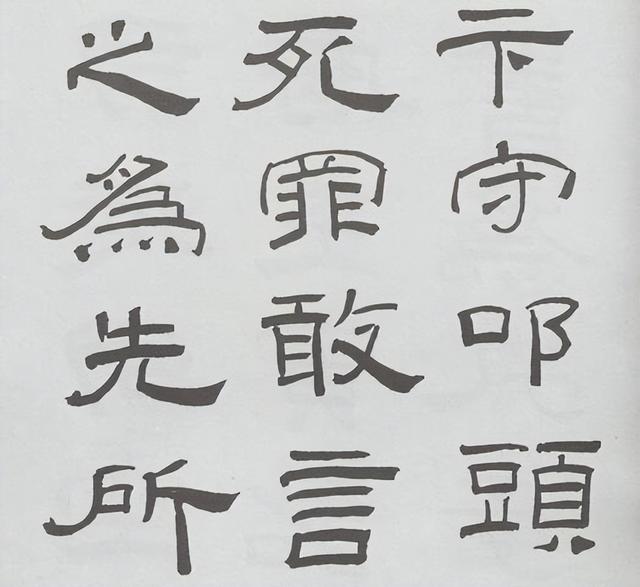 卞守叩頭
死罪敢言
之為先所